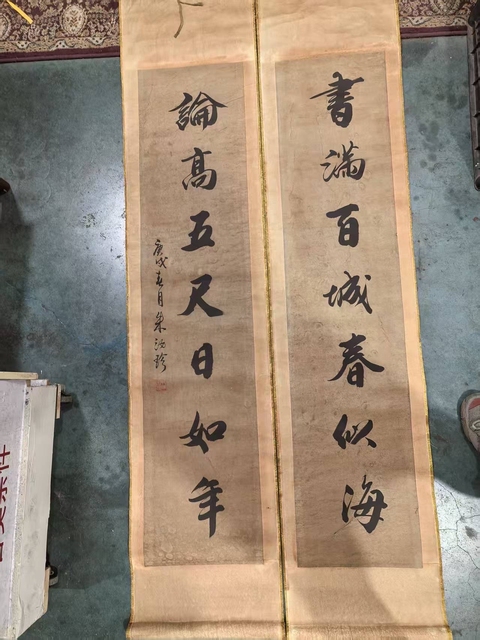 書滿百城春似海
論高五尺日如年
庚戌春月朱汝珍